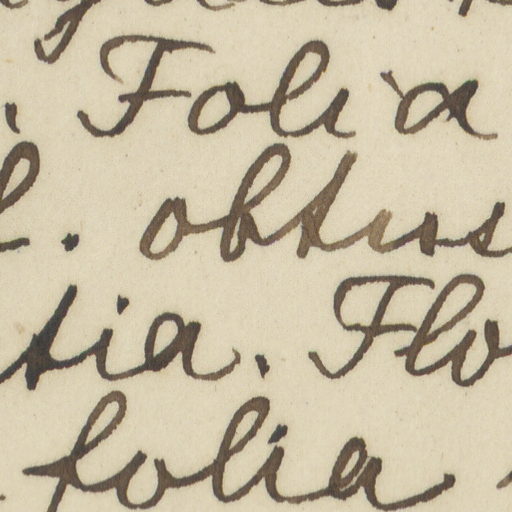 . Folia
. obtus
tia. Flo
folia